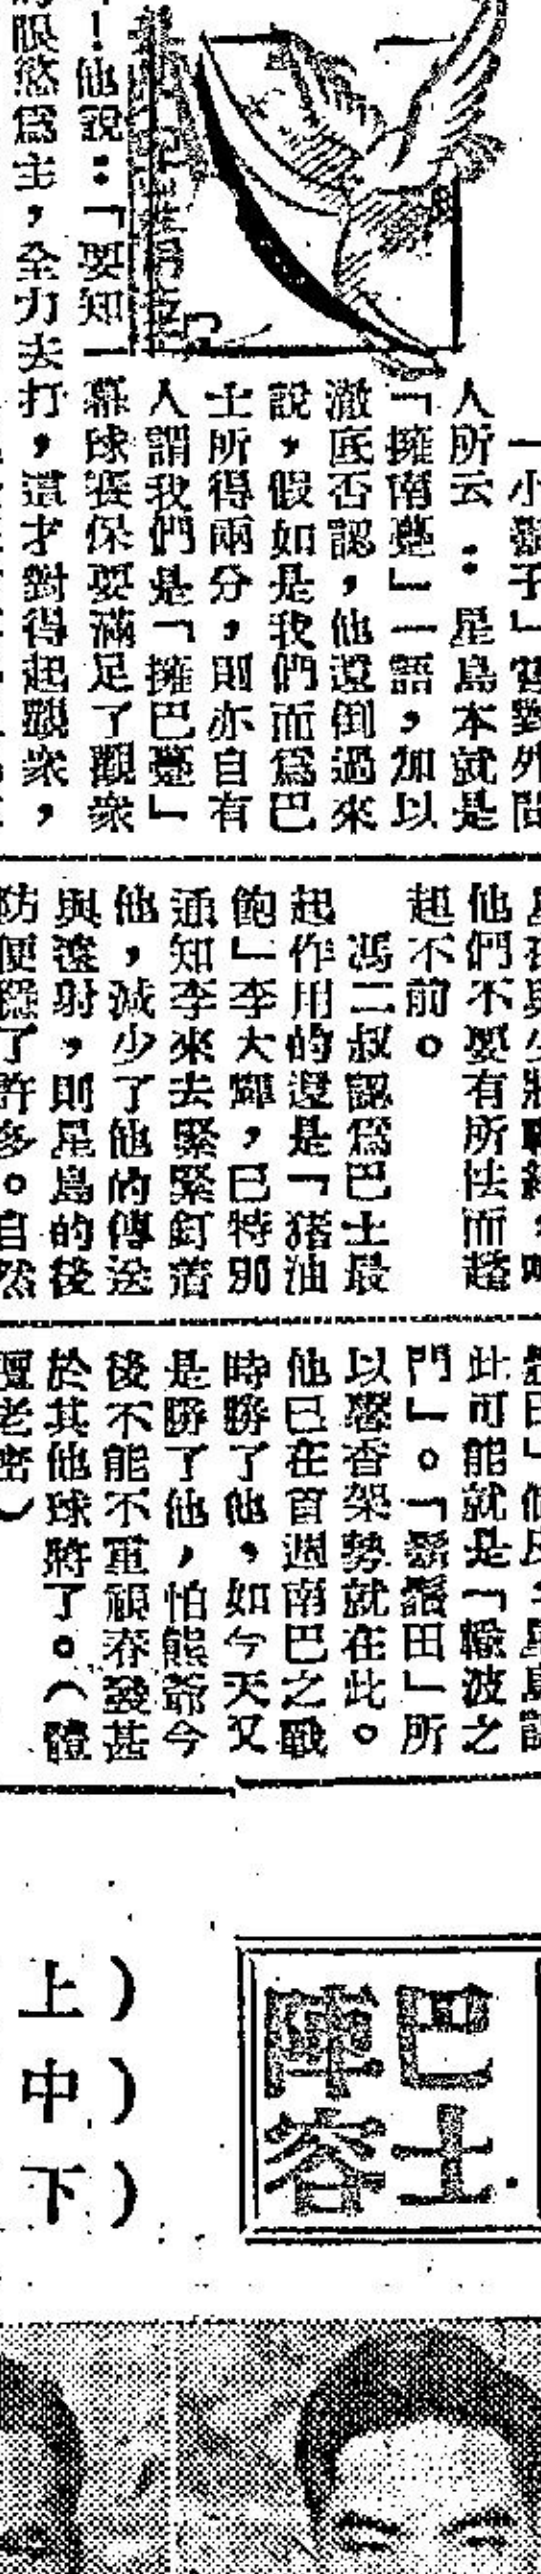 「小黐子」嘗對外間
人所云：星島本就是
「擁南躉」一語，加以
澈底否認，他還倒過來
說，假如是我們而爲巴
士所得兩分，則亦自有
人謂我們是「擁巴躉」
！他說：「要知一幕球賽保要滿足了觀衆
眼慾爲主，全力去打，這才對得起觀衆，
他們不要有所怯而趑
趄不前。
馮二叔認爲巴士最
起作用的還是「猪油
飽」李大輝，已特別
通知李來去緊緊釘着
他，減少了他的傳送
與遠射，則星島的後
防便穩了許多。自然
此可能就是「輸波之
門」。「鬍鬚田」所
以馨香架勢就在此。
他已在首週南巴之戰
時勝了他，如今天又
是勝了他，怕熊爺今
後不能不重視春發甚
於其他球將了。（體
壇老密）
巴士
陣容
（上
（中
（下